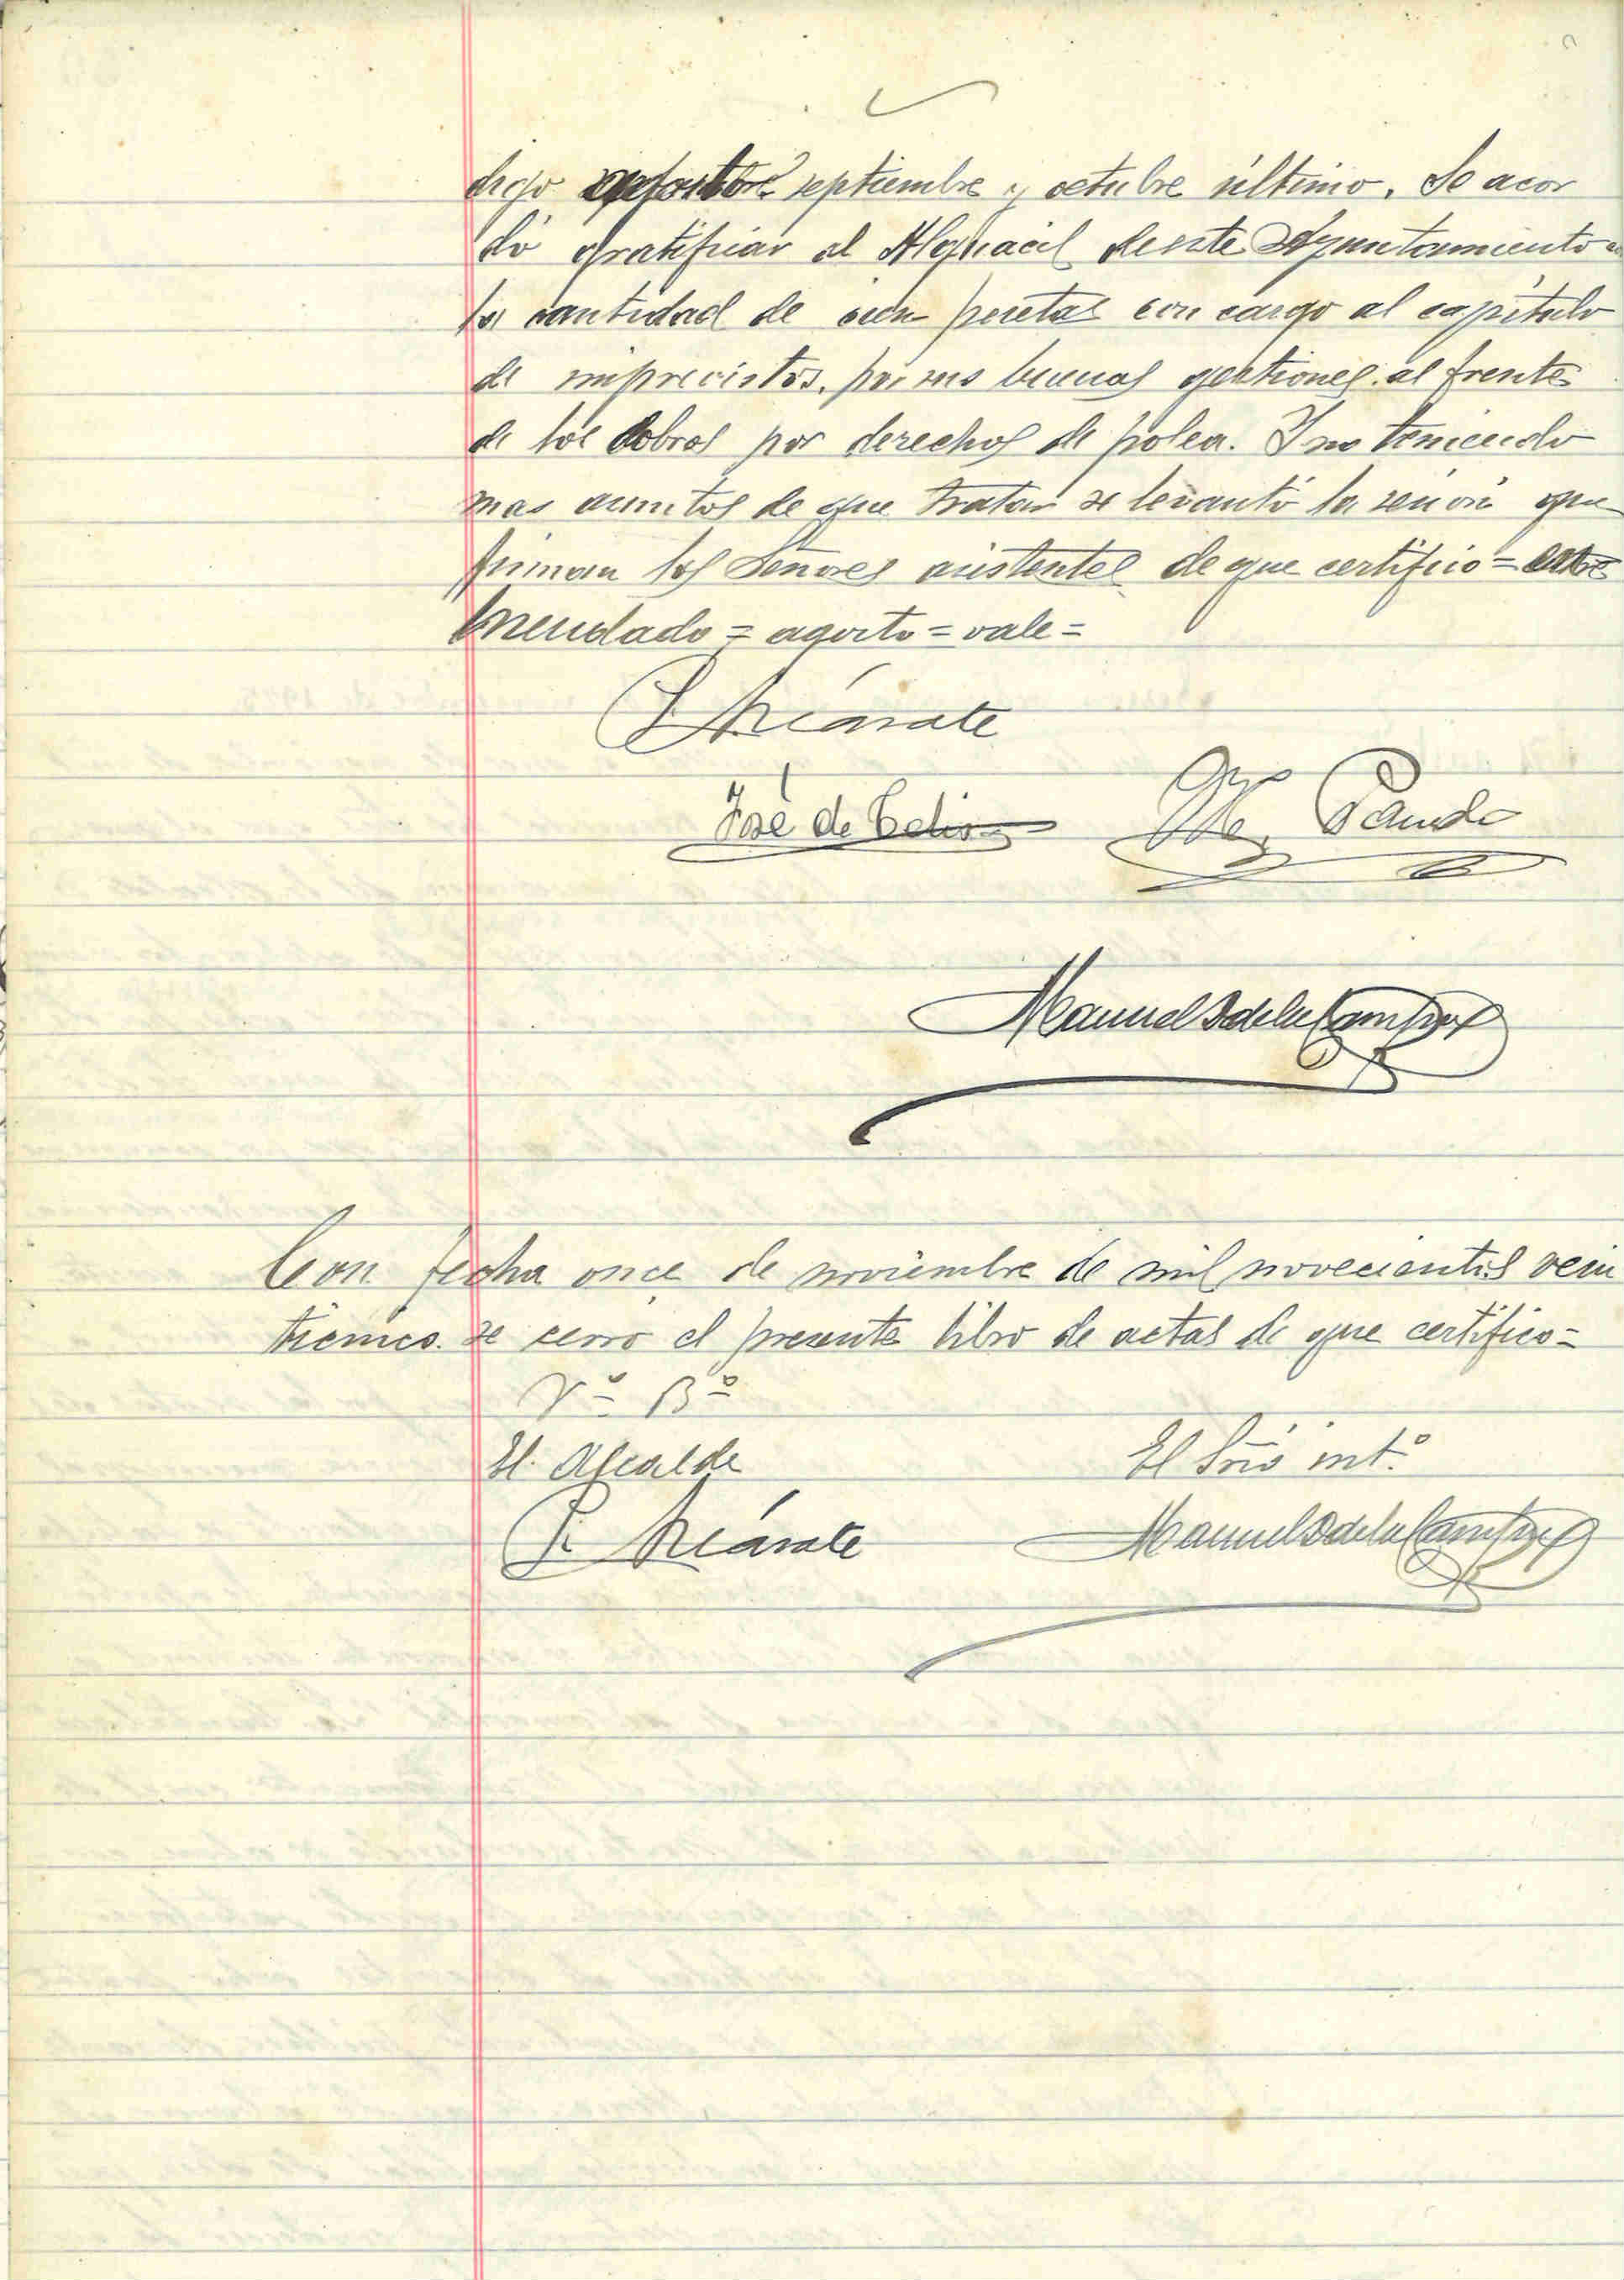 digo septiembre y octubre último. Se acor
dó gratificar al Alguacil deeste Ayuntamiento
la cantidad de cien pesetas con cargo al capítulo
de imprevistos, por sus buenas gestiones al frente
de los cobros por derechos de polea. Y no teniendo
mas asuntos de que tratar se levantó la sesión que
firman los Señores asistentes de que certifico =
mendado = agosto = vale =
José de
Manuel S de la Campa
Con fecha once de noviembre de mil novecientos vein
ticinco se cerró el presente libro de actas de que certifico =
Vº Bº
El Alcalde
El Srio int.º
Manuel S de la Campa